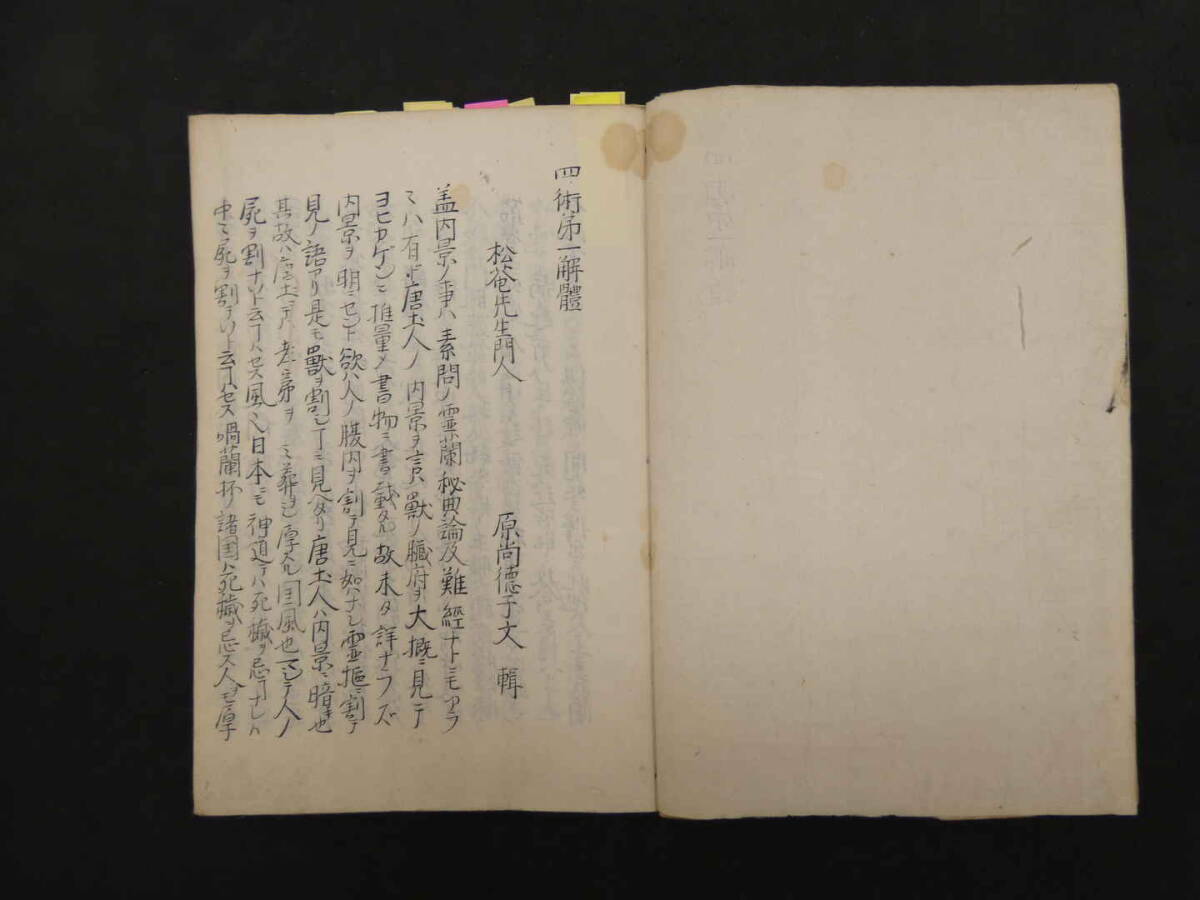 四術第一解體
松菴先生門人　原尚德子文　輯
盖内景ノ事ハ素問ノ霊蘭秘典論及難經ナトニモアラ
ミハ有圧唐土人ノ内景ヲ言ハ獣ノ臓府ヲ大概ニ見テ
ヨヒカゲンニ推量〆書物ニ書キ載タル故未タ詳ナラズ
内景ヲ明ニセント欲ハ人ノ腹内ヲ割テ見ニ如ハナシ霊樞ニ割テ
見ノ語アリ是モ獣ヲ割シヿニ見ヘタリ唐土人ハ内景ニ暗キ也
其故ハ唐土デハ孝弟ヲ ミ葬ヲ 厚スル国風也 テ人ノ
屍ヲ割ナソト云ヿハセス風 日本ニモ神道テハ死穢ヲ忌ヿナレハ
中々屍ヲ割ナソト云ヿハセス喎蘭杯ノ諸国ハ死穢ヲ忌ス人 厚